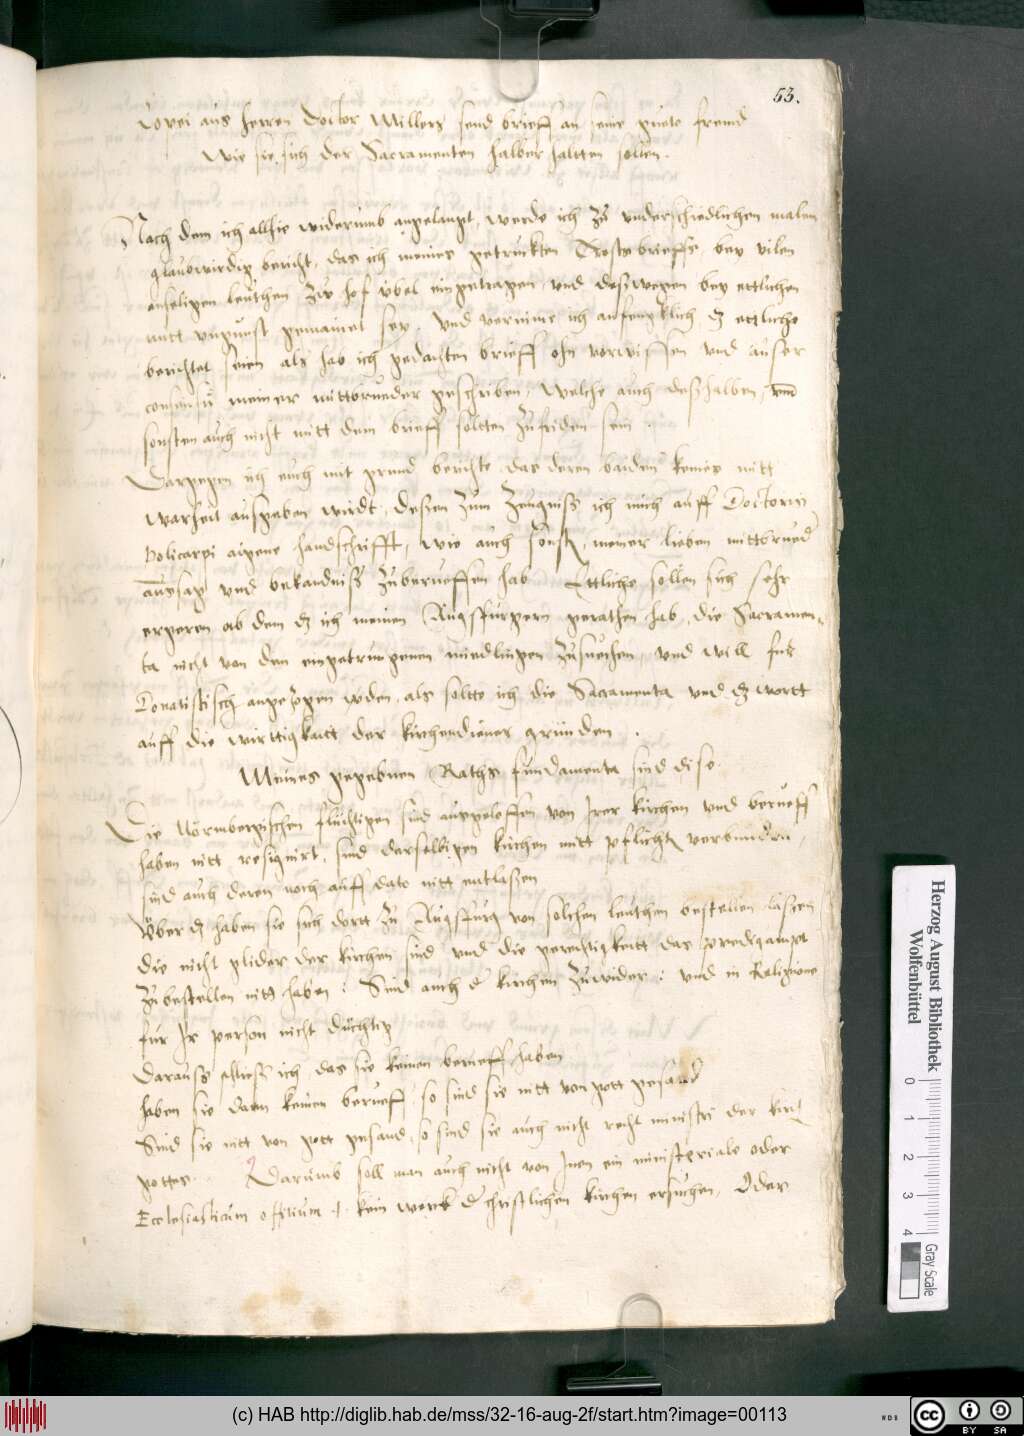 53.
Copei aus herren Doctor Millers send brieff an seine guete freund
Wie sie sich der Sacramenten halber haltten sollen.
Nach dem ich allhie widerumb angelangt, werde ich zu underschiedlichen malen
glaubwirdig bericht, das ich meines getruckten Trostbrieffs, bey vilen
unseligen leuthen zue hof übel eingetragen, und deswegen bey ettlichen
mitt ungunst gemainet sey. Und vernime ich anfengklich dz ettliche
berichtet seien als hab ich gedachten brieff ohn vorwissen und auser
consensu meiner mittbrueder geschriben, Welche auch deshalben, und
sonsten auch nicht mitt dem brieff soltten zufriden sein.
Dargegen ich euch mit grund berichte das deren baiden keines mitt
warheit ausgeben wirdt, dessen zum Zeugniss ich mich auff Doctoris
Policarpi aigene handschrifft, wie auch sonst meiner lieben mittbrueder
aussag und bekandniss zuberueffen hab Ettliche sollen sich sehr
ergeren ob dem dz ich meinen Augspurgern gerathen hab, die Sacramen-
ta nicht von den eingetrungenen miedlingen zusuechen, und will fur
Donatistisch angezogen werden, als soltte ich die Sacramenta und dz wortt
auff die wirttigkaitt der kirchendiener gründen.
Meines gegebnen Raths fundamenta sind diso.
Die Nörmbergischen flüchtigen sind ausgeloffen von Irer kirchen und berueff
haben nitt resignirt, sind derselbigen kirchen mitt pflicht verbunden,
sind auch deren noch auff dato nitt entlassen
Über dz haben sie sich dortt zu Augspurg von solchen leuthen bestellen lassen
die nicht glider der kirchen sind und die gerechtigkaitt das predigampt
zubestellen nitt haben: Sind auch der kirchen zuwider: und in Religione
für Ir person nicht düchtig
Darauss schliess ich, das sie keinen berueff haben
haben sie dann keinen berueff, so sind sie nitt von gott gesandt
Sind sie nitt von gott gesand, so sind sie auch nicht recht ministri der kirch
gottes. Darumb soll man auch nicht von Inen ein ministeriale oder
Ecclesiasticum offitium .i. kein werck der christlichen kirchen ersuchen, Oder
Herzog August Bibliothek
Wolfenbüttel
0 1 2 3 4
Gray Scale
(c) HAB http://diglib.hab.de/mss/32-16-aug-2f/start.htm?image=00113
WDB
cc BY SA